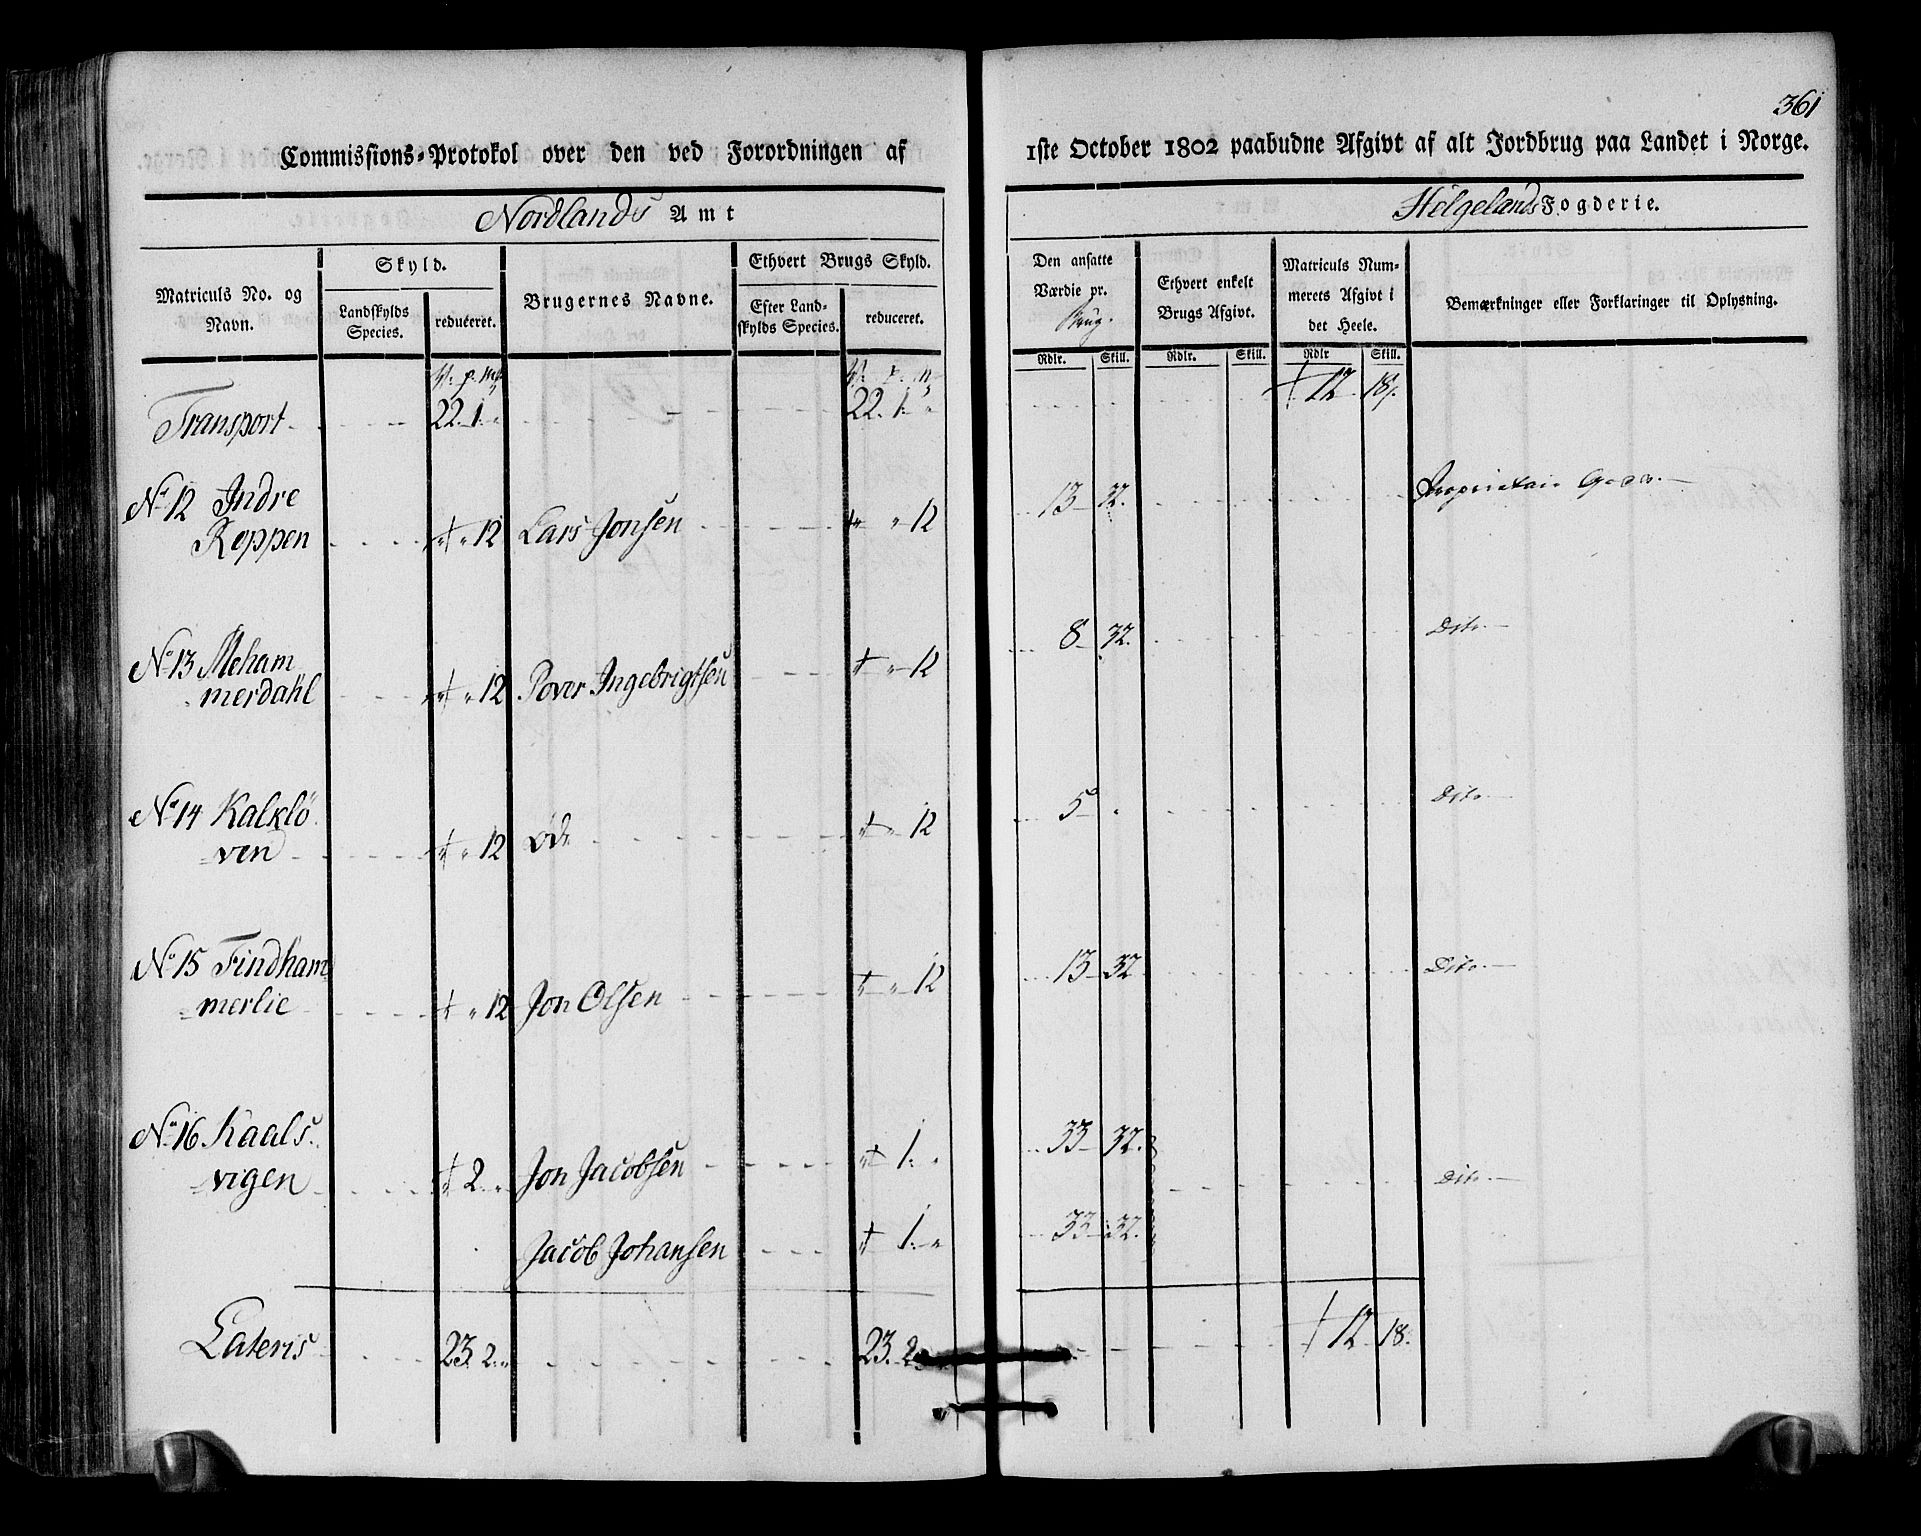 361
Commissions-Protokol over den ved Forordningen af 1ste October 1802 paabudne Afgivt af alt Jordbrug paa Landet i Norge.
Nordlands Amt Helgelands Fogderie.
Matriculs No. og Navn. Skyld. Landskylds Species. reduceret. Brugernes Navne. Ethvert Brugs Skyld. Efter Landskylds Species. reduceret. Den ansatte Værdie pr. Brug. Ethvert enkelt Brugs Afgivt. Matriculs Nummerets Afgivt i det Heele. Bemærkninger eller Forklaringer til Oplysning.
Rdlr. Skill. Rdlr. Skill. Rdlr Skill.
Transport 22. 1. " 22. 1. " 12 18
No 12 Indre
Koppen " 12 Lars Jonsen " 12 13 32. Proprietair Gods.
No 13 Meham
merdahl " 12 Povor Ingebrigtsen " 12 8 32. Dito.
No 14 Kalklö
ven " 12 Øde " 12 5 " Dito
No 15 Findham
merlie " 12 Jon Olsen " 12 13 32 Dito.
No 16 Kaals
vigen 2. " Jon Jacobsen 1. " 33 32. Dito.
Jacob Johansen 1. " 33 32.
Lateris 23. 2. " 23. 2 12 18.